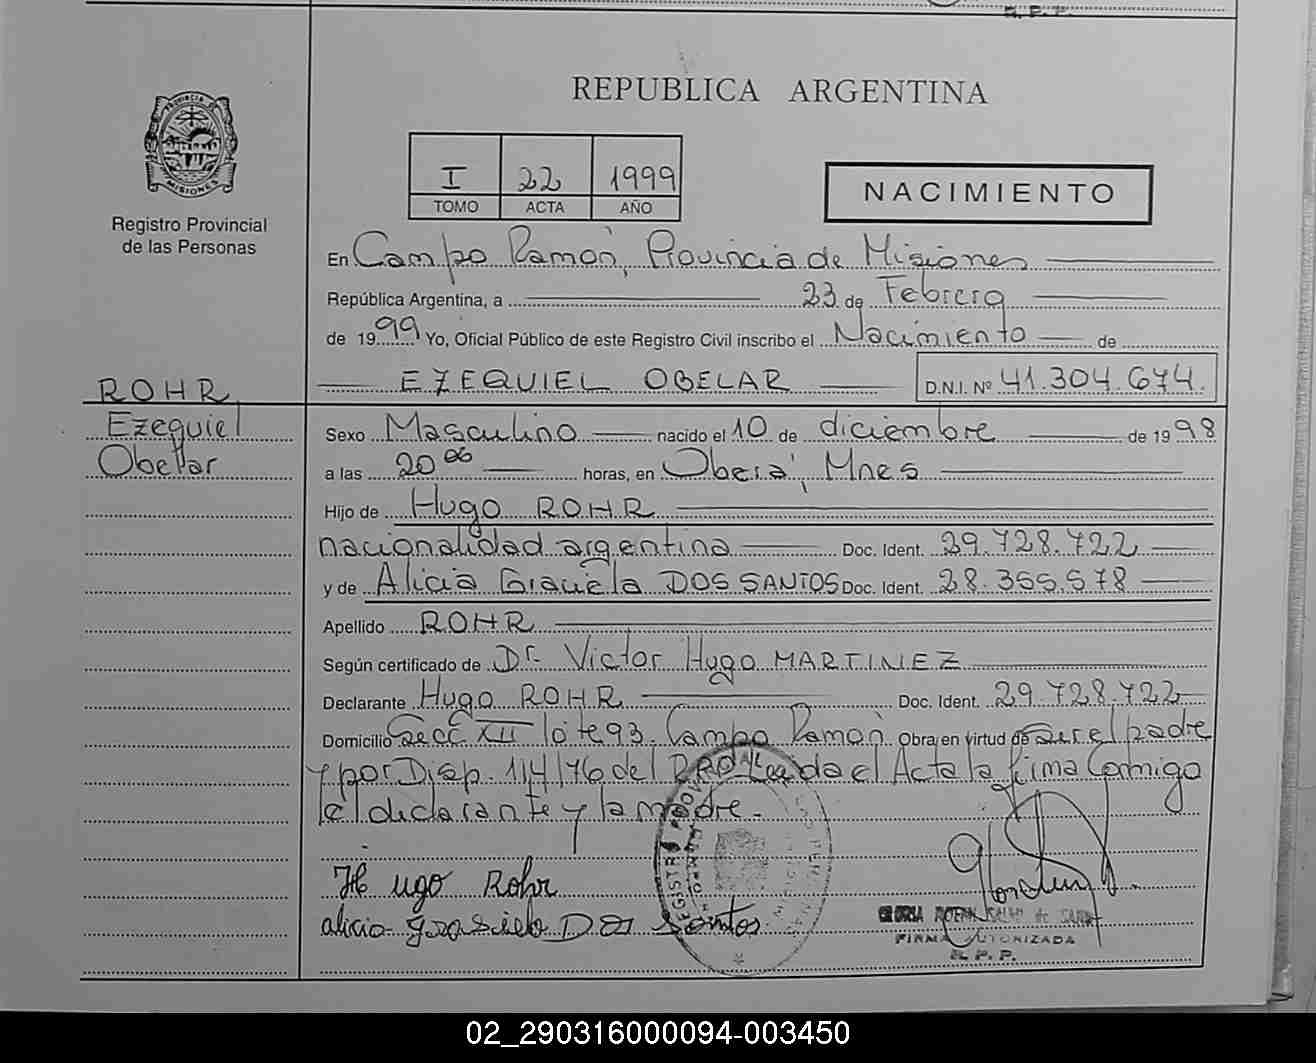 REPUBLICA ARGENTINA
PROVINCIA DE
MISIONES
Registro Provincial
de las Personas
I 22 1999
TOMO ACTA AÑO
NACIMIENTO
En Campo Ramón, Provincia de Misiones
República Argentina, a 23 de Febrero
de 1999 Yo, Oficial Público de este Registro Civil inscribo el Nacimiento de
EZEQUIEL OBELAR D.N.I. Nº 41.304.674.
ROHR
Ezequiel
Obelar
Sexo Masculino nacido el 10 de diciembre de 1998
a las 20 00 horas, en Oberá, Mnes
Hijo de Hugo ROHR
nacionalidad argentina Doc. Ident. 29.728.722
y de Alicia Graciela DOS SANTOS Doc. Ident. 28.355.578
Apellido ROHR
Según certificado de Dr. Victor Hugo MARTINEZ
Declarante Hugo ROHR Doc. Ident. 29.728.722
Domicilio Secc XII lote 93. Campo Ramón Obra en virtud de Ser el padre
y por Disp. 114/76 del RPP Leída el Acta la firma Conmigo
el declarante y la madre.
Hugo Rohr
alicia Dos Santos
GLORIA
FIRMA AUTORIZADA
R. P. P.
02_290316000094-003450